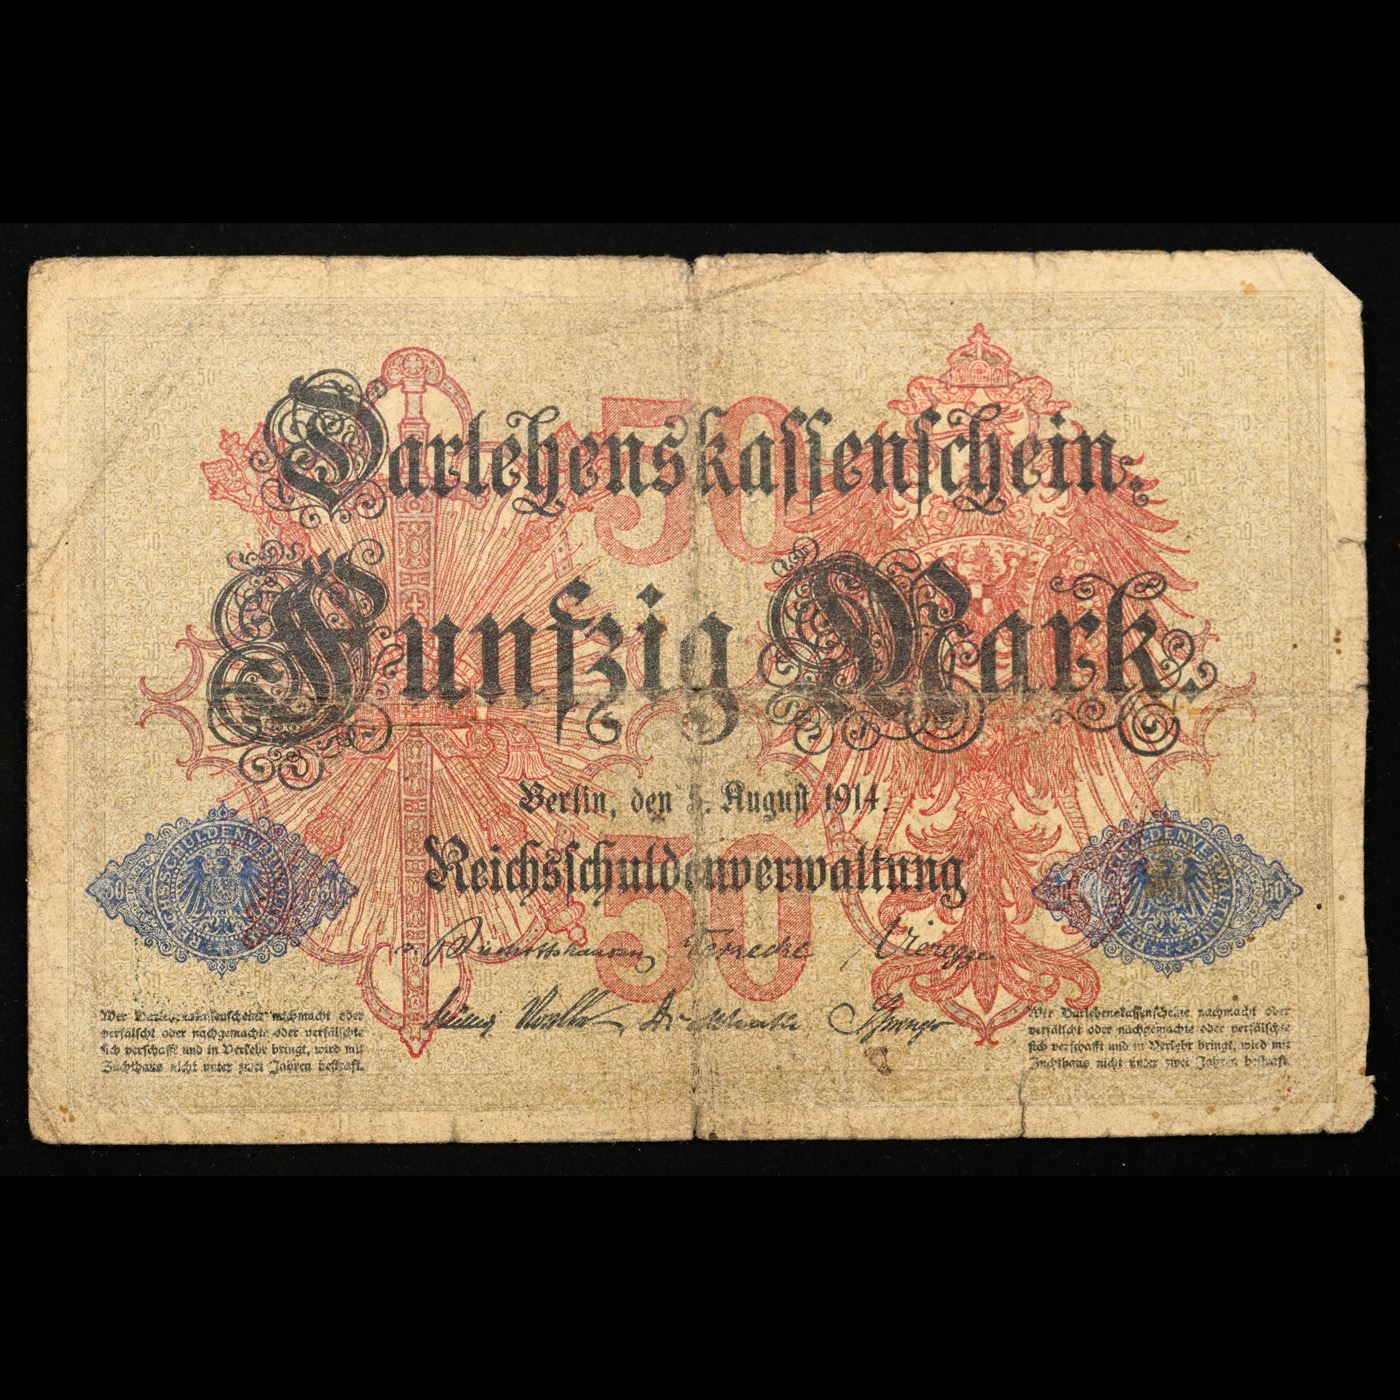 50
Darlehenskassenschein.
Fünfzig Mark.
Berlin, den 5. August 1914.
Reichsschuldenverwaltung
50
50 REICHSSCHULDENVERWALTUNG 50
50 REICHSSCHULDENVERWALTUNG 50
v. Bischoffshausen Warnecke Vieregge
Müller Dickhuth Springer
Wer Darlehenskassenscheine nachmacht oder
verfälscht oder nachgemachte oder verfälschte
sich verschafft und in Verkehr bringt, wird mit
Zuchthaus nicht unter zwei Jahren bestraft.
Wer Darlehenskassenscheine nachmacht oder
verfälscht oder nachgemachte oder verfälschte
sich verschafft und in Verkehr bringt, wird mit
Zuchthaus nicht unter zwei Jahren bestraft.